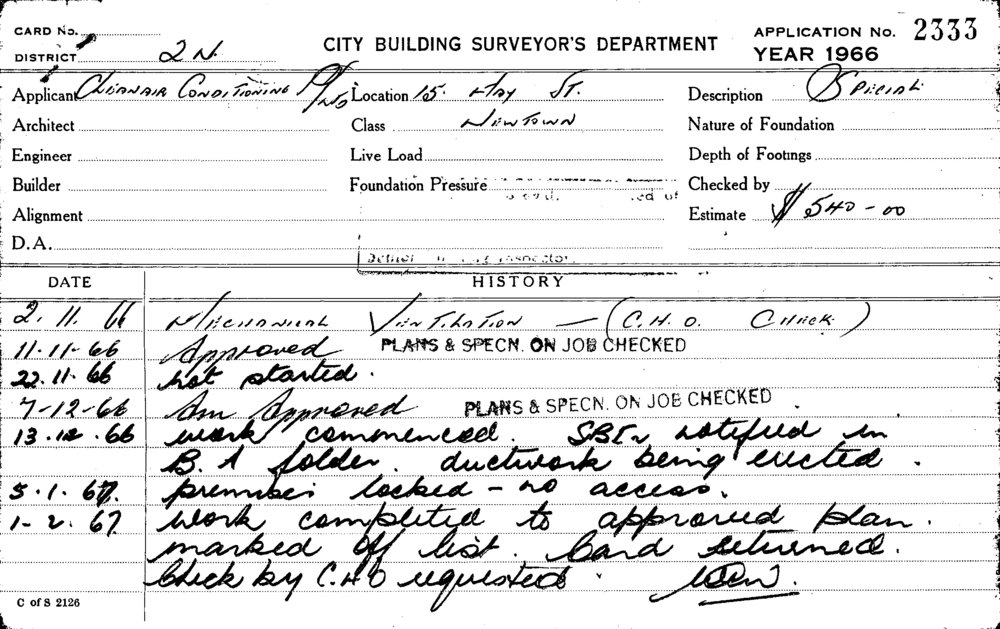 CARD No.
DISTRICT 2 N.
CITY BUILDING SURVEYOR'S DEPARTMENT
APPLICATION No. 2333
YEAR 1966
Applicant Cleanair Conditioning P/L
Location 15. Hay St.
Description Special
Architect
Class Newtown
Nature of Foundation
Engineer
Live Load
Depth of Footings
Builder
Foundation Pressure
Checked by
Alignment
Estimate $ 540-00
D.A.
DATE HISTORY
2. 11. 66 Mechanical Ventilation — (C.H.O. Check)
11-11-66 Approved PLANS & SPECN. ON JOB CHECKED
22.11.66 not started.
7-12-66 Am Approved PLANS & SPECN. ON JOB CHECKED
13.12.66 work commenced. SBI notified in
B.A folder. ductwork being erected.
5.1.67. premises locked - no access.
1-2.67. work completed to approved plan.
marked off list. Card returned.
Check by C.H.O requested.
C of S 2126